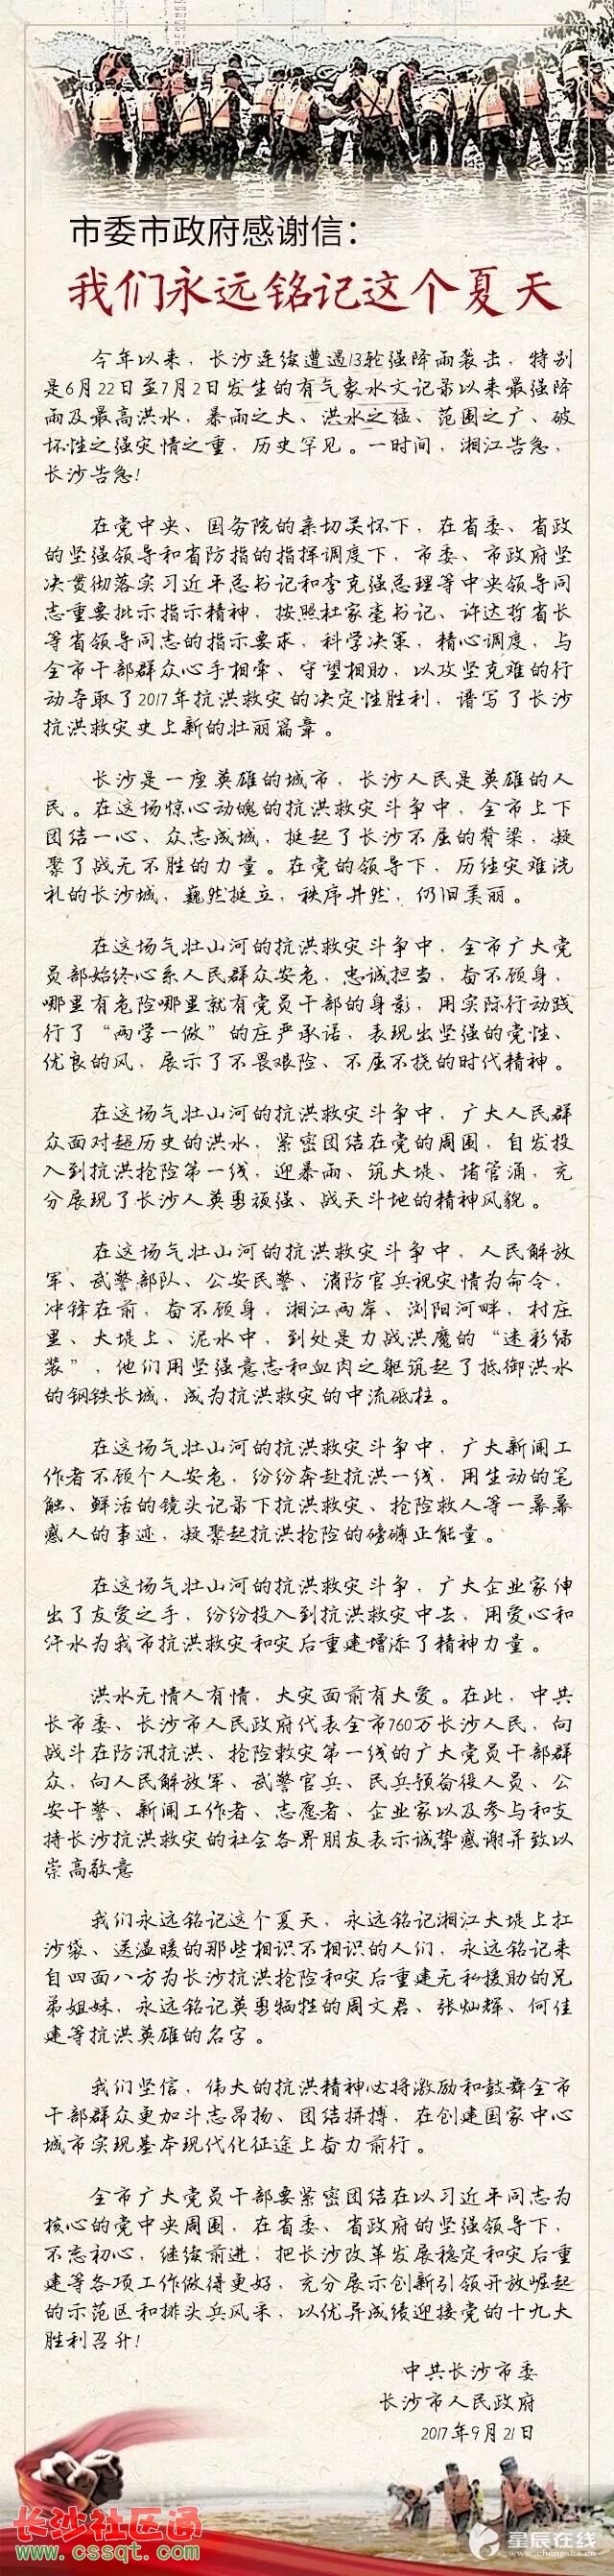 市委市政府感谢信：
我们永远铭记这个夏天
今年以来，长沙连续遭遇13轮强降雨袭击，特别
是6月22日至7月2日发生的有气象水文记录以来最强降
雨及最高洪水，暴雨之大、洪水之猛、范围之广、破
坏性之强灾情之重，历史罕见。一时间，湘江告急，
长沙告急！
在党中央、国务院的亲切关怀下，在省委、省政
的坚强领导和省防指的指挥调度下，市委、市政府坚
决贯彻落实习近平总书记和李克强总理等中央领导同
志重要批示指示精神，按照杜家毫书记、许达哲省长
等省领导同志的指示要求，科学决策，精心调度，与
全市干部群众心手相牵、守望相助，以攻坚克难的行
动夺取了2017年抗洪救灾的决定性胜利，谱写了长沙
抗洪救灾史上新的壮丽篇章。
长沙是一座英雄的城市，长沙人民是英雄的人
民。在这场惊心动魄的抗洪救灾斗争中，全市上下
团结一心、众志成城，挺起了长沙不屈的脊梁，凝
聚了战无不胜的力量。在党的领导下，历经灾难洗
礼的长沙城，巍然挺立，秩序井然，仍旧美丽。
在这场气壮山河的抗洪救灾斗争中，全市广大党
员部始终心系人民群众安危，忠诚担当，奋不顾身，
哪里有危险哪里就有党员干部的身影，用实际行动践
行了“两学一做”的庄严承诺，表现出坚强的党性、
优良的风，展示了不畏艰险、不屈不挠的时代精神。
在这场气壮山河的抗洪救灾斗争中，广大人民群
众面对超历史的洪水，紧密团结在党的周围，自发投
入到抗洪抢险第一线，迎暴雨、筑大堤、堵管涌，充
分展现了长沙人英勇顽强、战天斗地的精神风貌。
在这场气壮山河的抗洪救灾斗争中，人民解放
军、武警部队、公安民警、消防官兵视灾情为命令，
冲锋在前，奋不顾身，湘江两岸、浏阳河畔，村庄
里、大堤上、泥水中，到处是力战洪魔的“迷彩绿
装”，他们用坚强意志和血肉之躯筑起了抵御洪水
的钢铁长城，成为抗洪救灾的中流砥柱。
在这场气壮山河的抗洪救灾斗争中，广大新闻工
作者不顾个人安危，纷纷奔赴抗洪一线，用生动的笔
触、鲜活的镜头记录下抗洪救灾、抢险救人等一幕幕
感人的事迹，凝聚起抗洪抢险的磅礴正能量。
在这场气壮山河的抗洪救灾斗争，广大企业家伸
出了友爱之手，纷纷投入到抗洪救灾中去，用爱心和
汗水为我市抗洪救灾和灾后重建增添了精神力量。
洪水无情人有情，大灾面前有大爱。在此，中共
长市委、长沙市人民政府代表全市760万长沙人民，向
战斗在防汛抗洪、抢险救灾第一线的广大党员干部群
众，向人民解放军、武警官兵、民兵预备役人员、公
安干警、新闻工作者、志愿者、企业家以及参与和支
持长沙抗洪救灾的社会各界朋友表示诚挚感谢并致以
崇高敬意
我们永远铭记这个夏天，永远铭记湘江大堤上扛
沙袋、送温暖的那些相识不相识的人们，永远铭记来
自四面八方为长沙抗洪抢险和灾后重建无私援助的兄
弟姐妹，永远铭记英勇牺牲的周文君、张灿辉、何佳
建等抗洪英雄的名字。
我们坚信，伟大的抗洪精神必将激励和鼓舞全市
干部群众更加斗志昂扬、团结拼搏，在创建国家中心
城市实现基本现代化征途上奋力前行。
全市广大党员干部要紧密团结在以习近平同志为
核心的党中央周围，在省委、省政府的坚强领导下，
不忘初心，继续前进，把长沙改革发展稳定和灾后重
建等各项工作做得更好，充分展示创新引领开放崛起
的示范区和排头兵风采，以优异成绩迎接党的十九大
胜利召开！
中共长沙市委
长沙市人民政府
2017年9月21日
长沙社区通
www.cssqt.com
星辰在线
www.changsha.cn